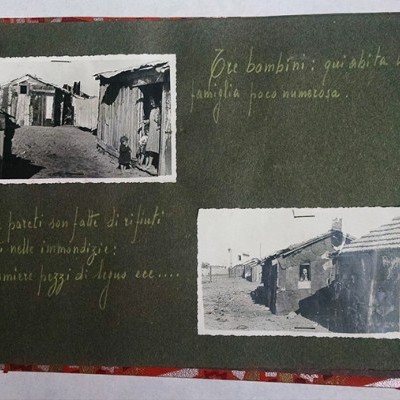 Tre bambini: qui abita u
famiglia poco numerosa.
pareti son fatte di rifiuti
i nelle immondizie:
amiere pezzi di legno ecc....